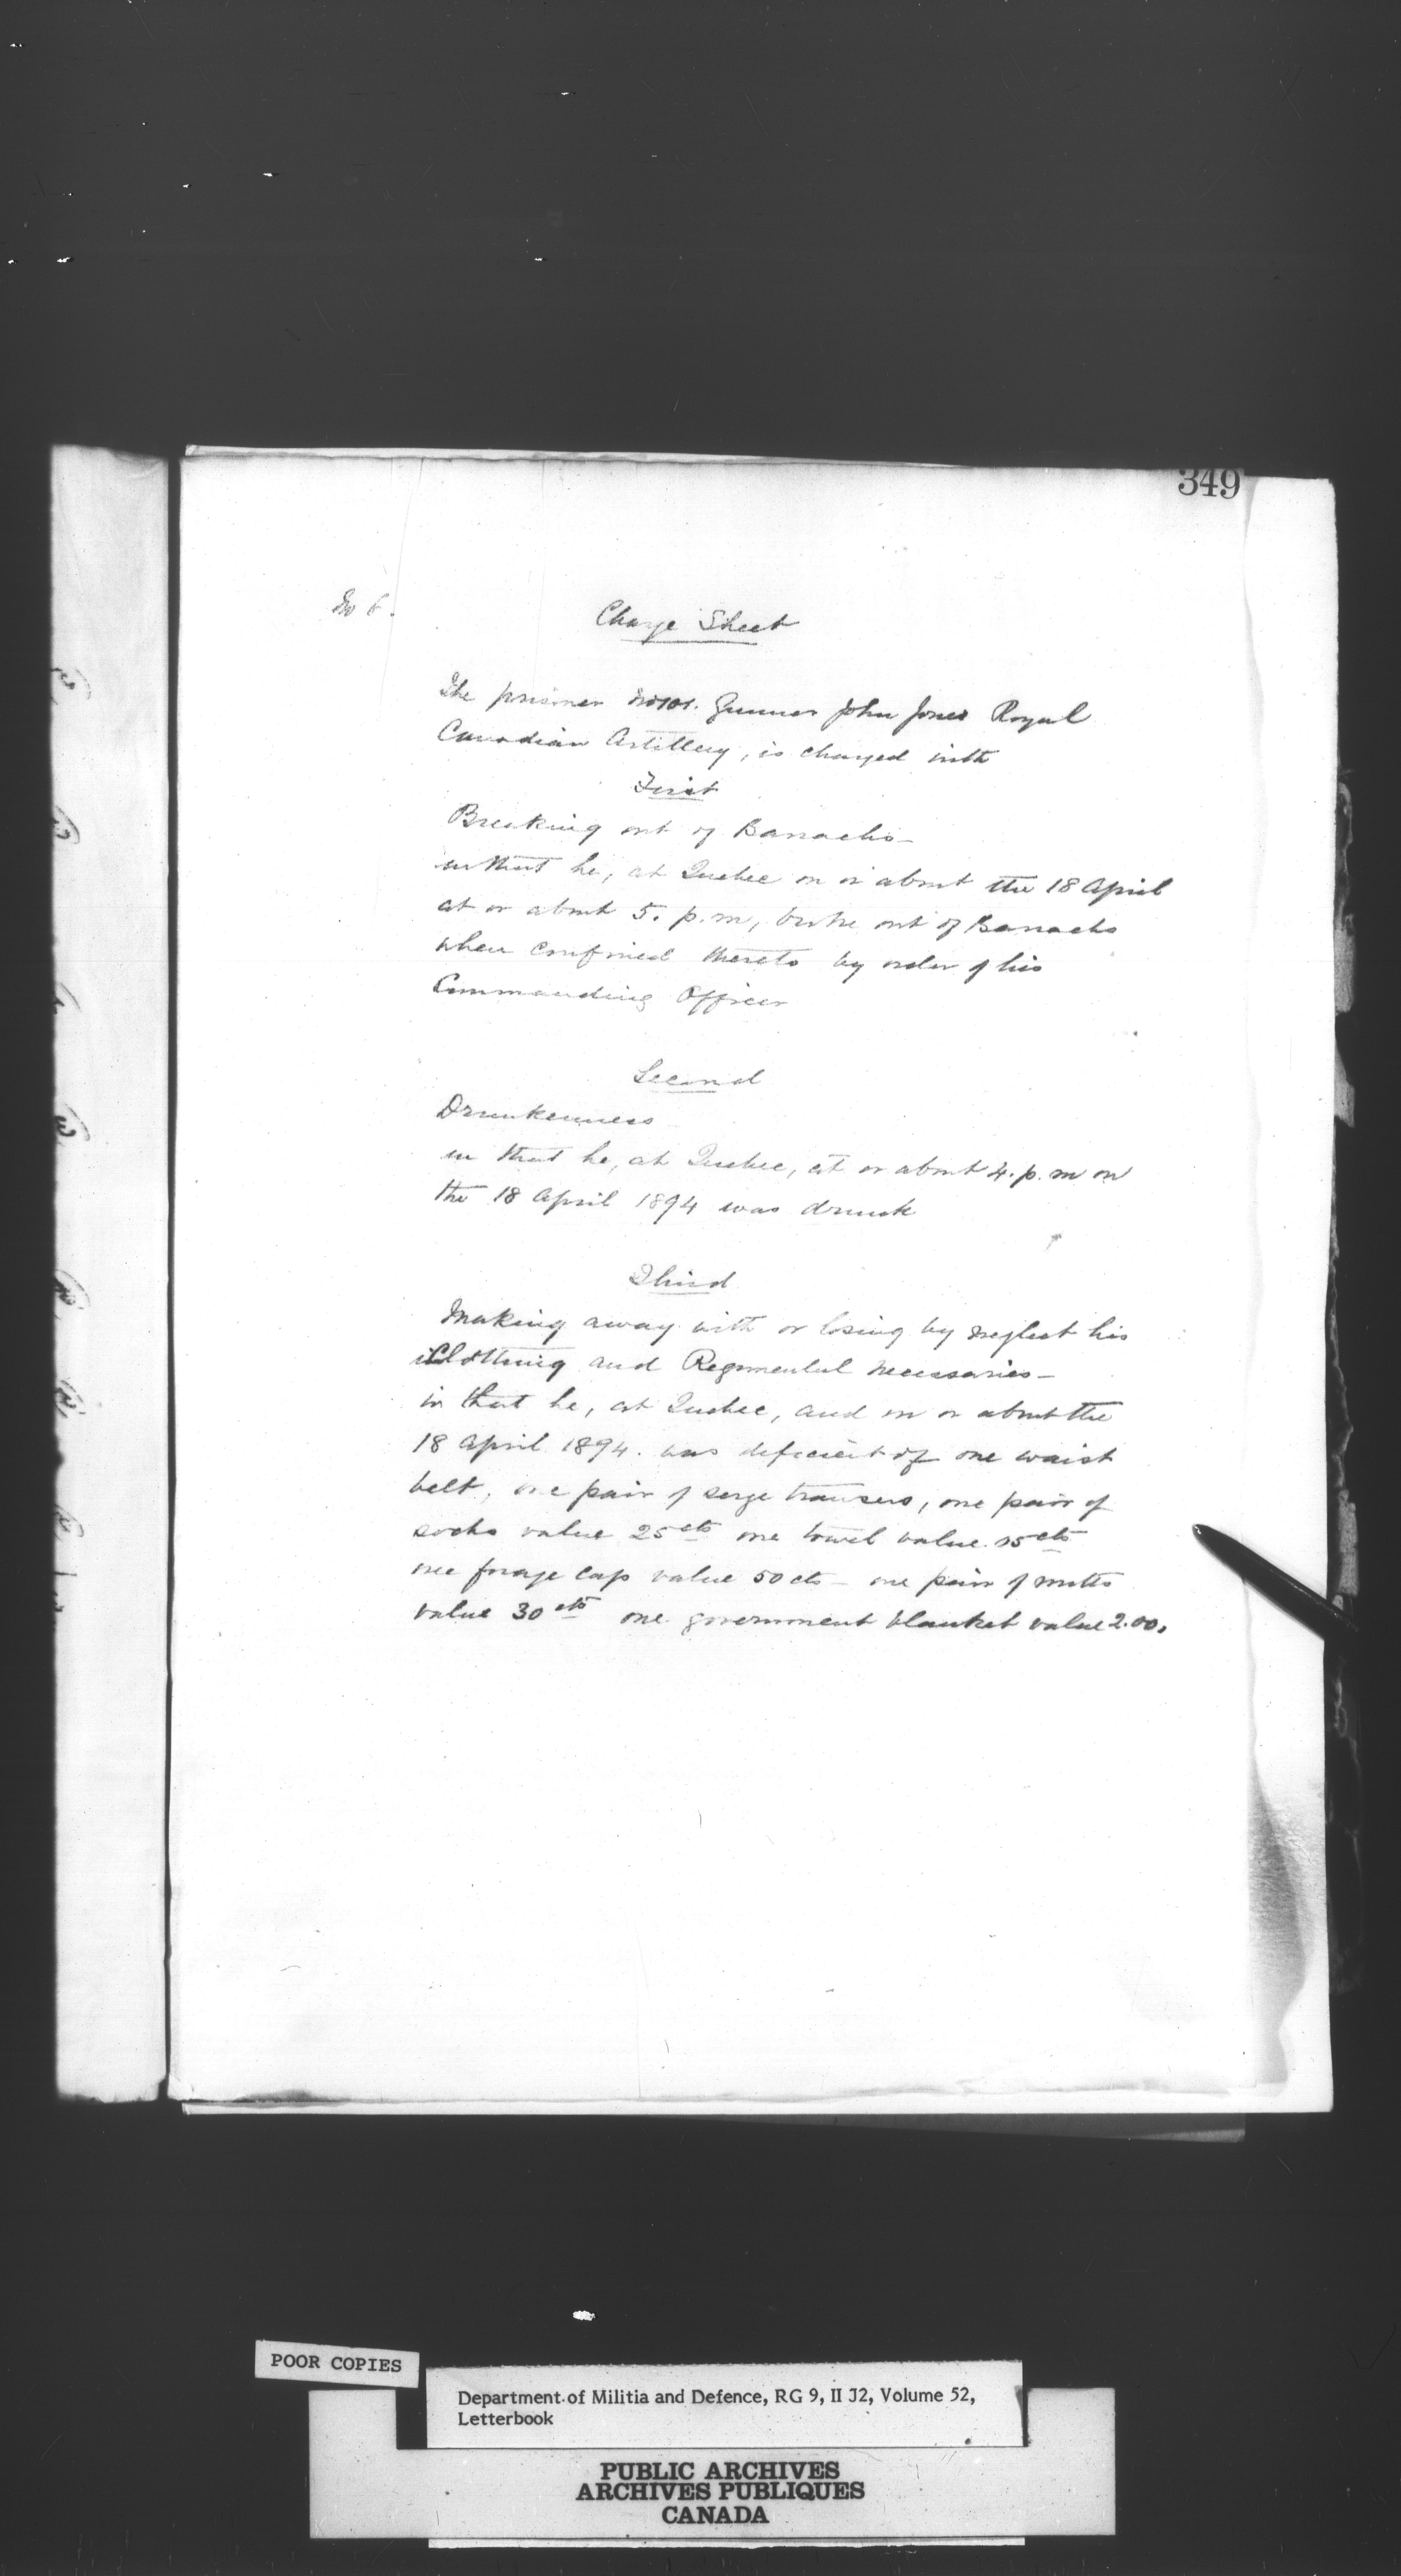 349
No 6.
Charge Sheet
The prisoner No 101. Gunner John Jones Royal
Canadian Artillery, is charged with
First
Breaking out of Barracks—
in that he, at Quebec on or about the 18 April
at or about 5. p.m, broke out of Barracks
when confined thereto by order of his
Commanding Officer
Second
Drunkenness
in that he, at Quebec, at or about 4. p.m on
the 18 April 1894 was drunk
Third
Making away with or losing by neglect his
Clothing and Regimental necessaries—
in that he, at Quebec, and on or about the
18 April 1894. was deficient of one waist
belt, one pair of serge trousers, one pair of
socks value 25 cts one towel value 15 cts
one forage cap value 50 cts — one pair of mitts
value 30 cts one government blanket value 2.00.
POOR COPIES
Department of Militia and Defence, RG 9, II J2, Volume 52,
Letterbook
PUBLIC ARCHIVES
ARCHIVES PUBLIQUES
CANADA